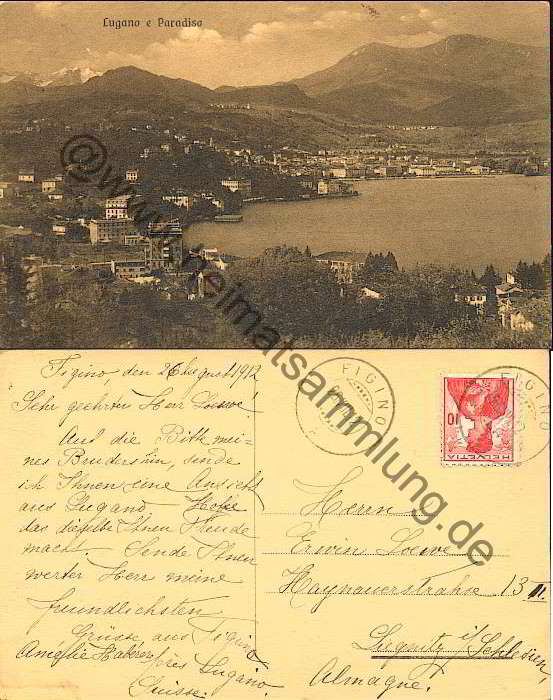 Lugano e Paradiso
@www.heimatsammlung.de
Figino, den 26 August 1912
Sehr geehrter Herr Loewe!
Auf die Bitte mei-
nes Bruders, sende
ich Ihnen eine Ansicht
aus Lugano. Hoffe
das dieselbe Ihnen Freude
macht. Sende Ihnen
werter Herr meine
freundlichsten
Grüsse aus Figino
près Lugano.
Suisse.
Amelie
FIGINO
FIGINO
10
HELVETIA
Herrn
Erwin Loewe
Haynauerstrahse 13 III.
Liegnitz i/ Schlesien,
Almagne.